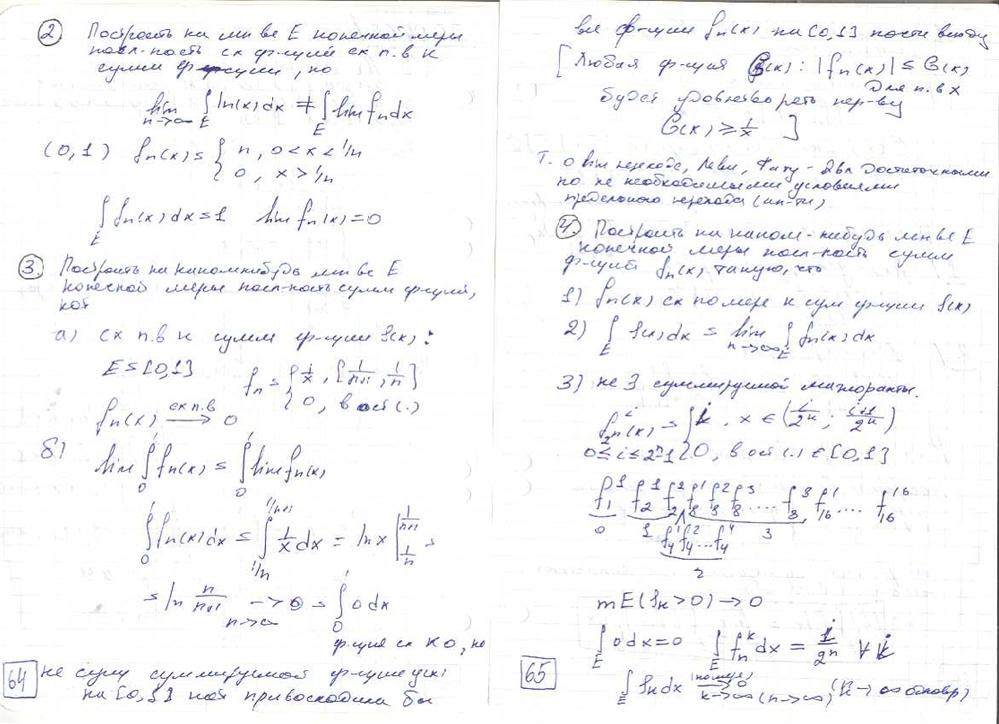 ② Построить на мн-ве E конечной меры
посл-ность сх ф-ций сх п.в к
сумм ф-ции, но
lim n→∞ ∫E fn(x)dx ≠ ∫E lim fn dx
(0,1) fn(x) = { n, 0<x<1/n
0, x>1/n
∫E fn(x)dx = 1 lim fn(x) = 0
③ Построить на каком-нибудь мн-ве E
конечной меры посл-ность сумм ф-ций,
кот
а) сх п.в к сумм ф-ции f(x):
E = [0,1] fn = { 1/x, [1/n+1, 1/n]
0, в ост (.)
fn(x) сх п.в → 0
б) lim ∫ fn(x) = ∫ lim fn(x)
∫ fn(x)dx = ∫ 1/x dx = ln x | 1/n+1 1/n =
= ln n/n+1 → 0 = ∫ 0 dx
n→∞
ф-ция сх к 0, но
64 не сущ суммируемой ф-ции
на [0,1] кот превосходила бы
все ф-ции fn(x) на [0,1] почти всюду
[Любая ф-ция G(x): |fn(x)| ≤ G(x)
для п.в x
будет удовлетворять нер-ву
G(x) ≥ 1/x ]
Т. о переходе, Леви, Фату - явл достаточными
но не необходимыми условиями
предельного перехода
4. Построить на каком-нибудь мн-ве E
конечной меры посл-ность сумм
ф-ций fn(x) такую, что
1) fn(x) сх по мере к сум ф-ции f(x)
2) ∫E f(x)dx = lim n→∞ ∫E fn(x)dx
3) не ∃ суммируемой мажоранты.
x ∈ (i/2ⁿ; i+1/2ⁿ)
0≤i≤2ⁿ-1 0, в ост (.) ∈ [0,1]
f₁¹ f₂¹ f₂² f₈¹ f₈² f₈³ .... f₈⁸ f₁₆¹ .... f₁₆¹⁶
0 1 3
f₄¹ f₄² ... f₄⁴
2
mE(fn>0) → 0
∫E 0dx = 0 ∫E fnᵏ dx = 1/2ⁿ ∀
65 ∫E fn dx → 0
k→∞ (n→∞)